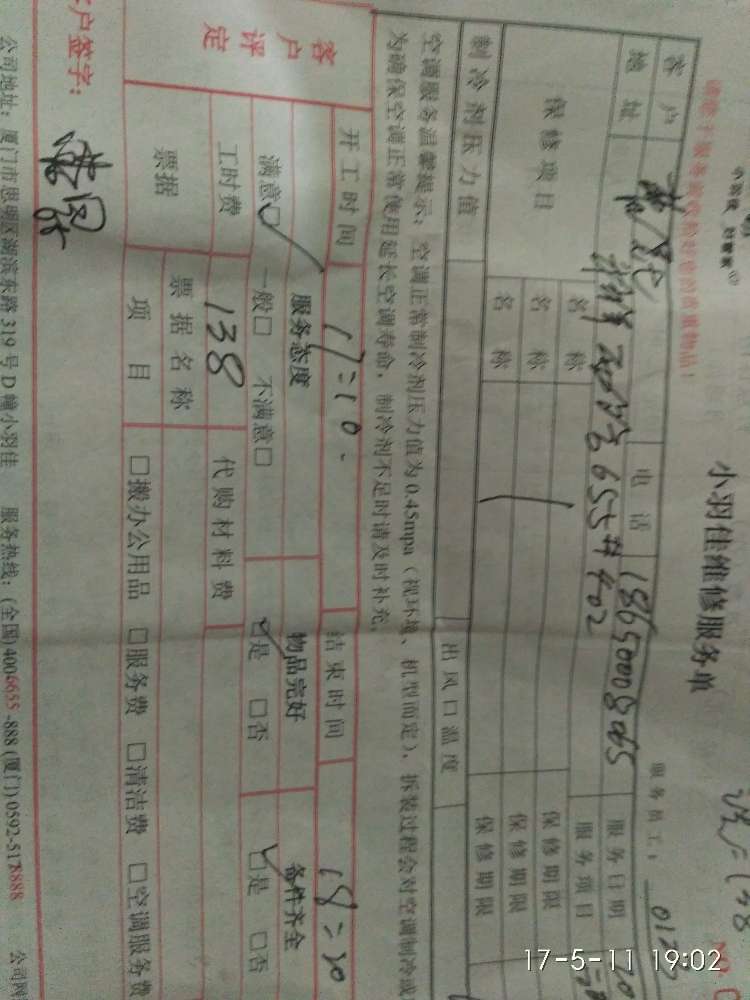 小羽佳 好管家
请您于服务前收检好您的贵重物品！
小羽佳维修服务单
服务员工：
客户
电话
18650008065
服务日期
地址
655#402
服务项目
保修项目
名称
保修期限
名称
保修期限
名称
保修期限
制冷剂压力值
出风口温度
空调服务温馨提示：空调正常制冷剂压力值为0.45mpa（视环境、机型而定），拆装过程会对空调制冷或
为确保空调正常使用延长空调寿命，制冷剂不足时请及时补充。
开工时间
17=10
结束时间
18=20
客户评定
服务态度
物品完好
备件齐全
满意□ 一般□ 不满意□
□是 □否
□是 □否
工时费
138
代购材料费
票据
票据名称
项目
□搬办公用品 □服务费 □清洁费 □空调服务费
客户签字：
公司地址：厦门市思明区湖滨东路319号D幢小羽佳 服务热线：(全国)4006655-888 (厦门)0592-5178888 公司网
17-5-11 19:02